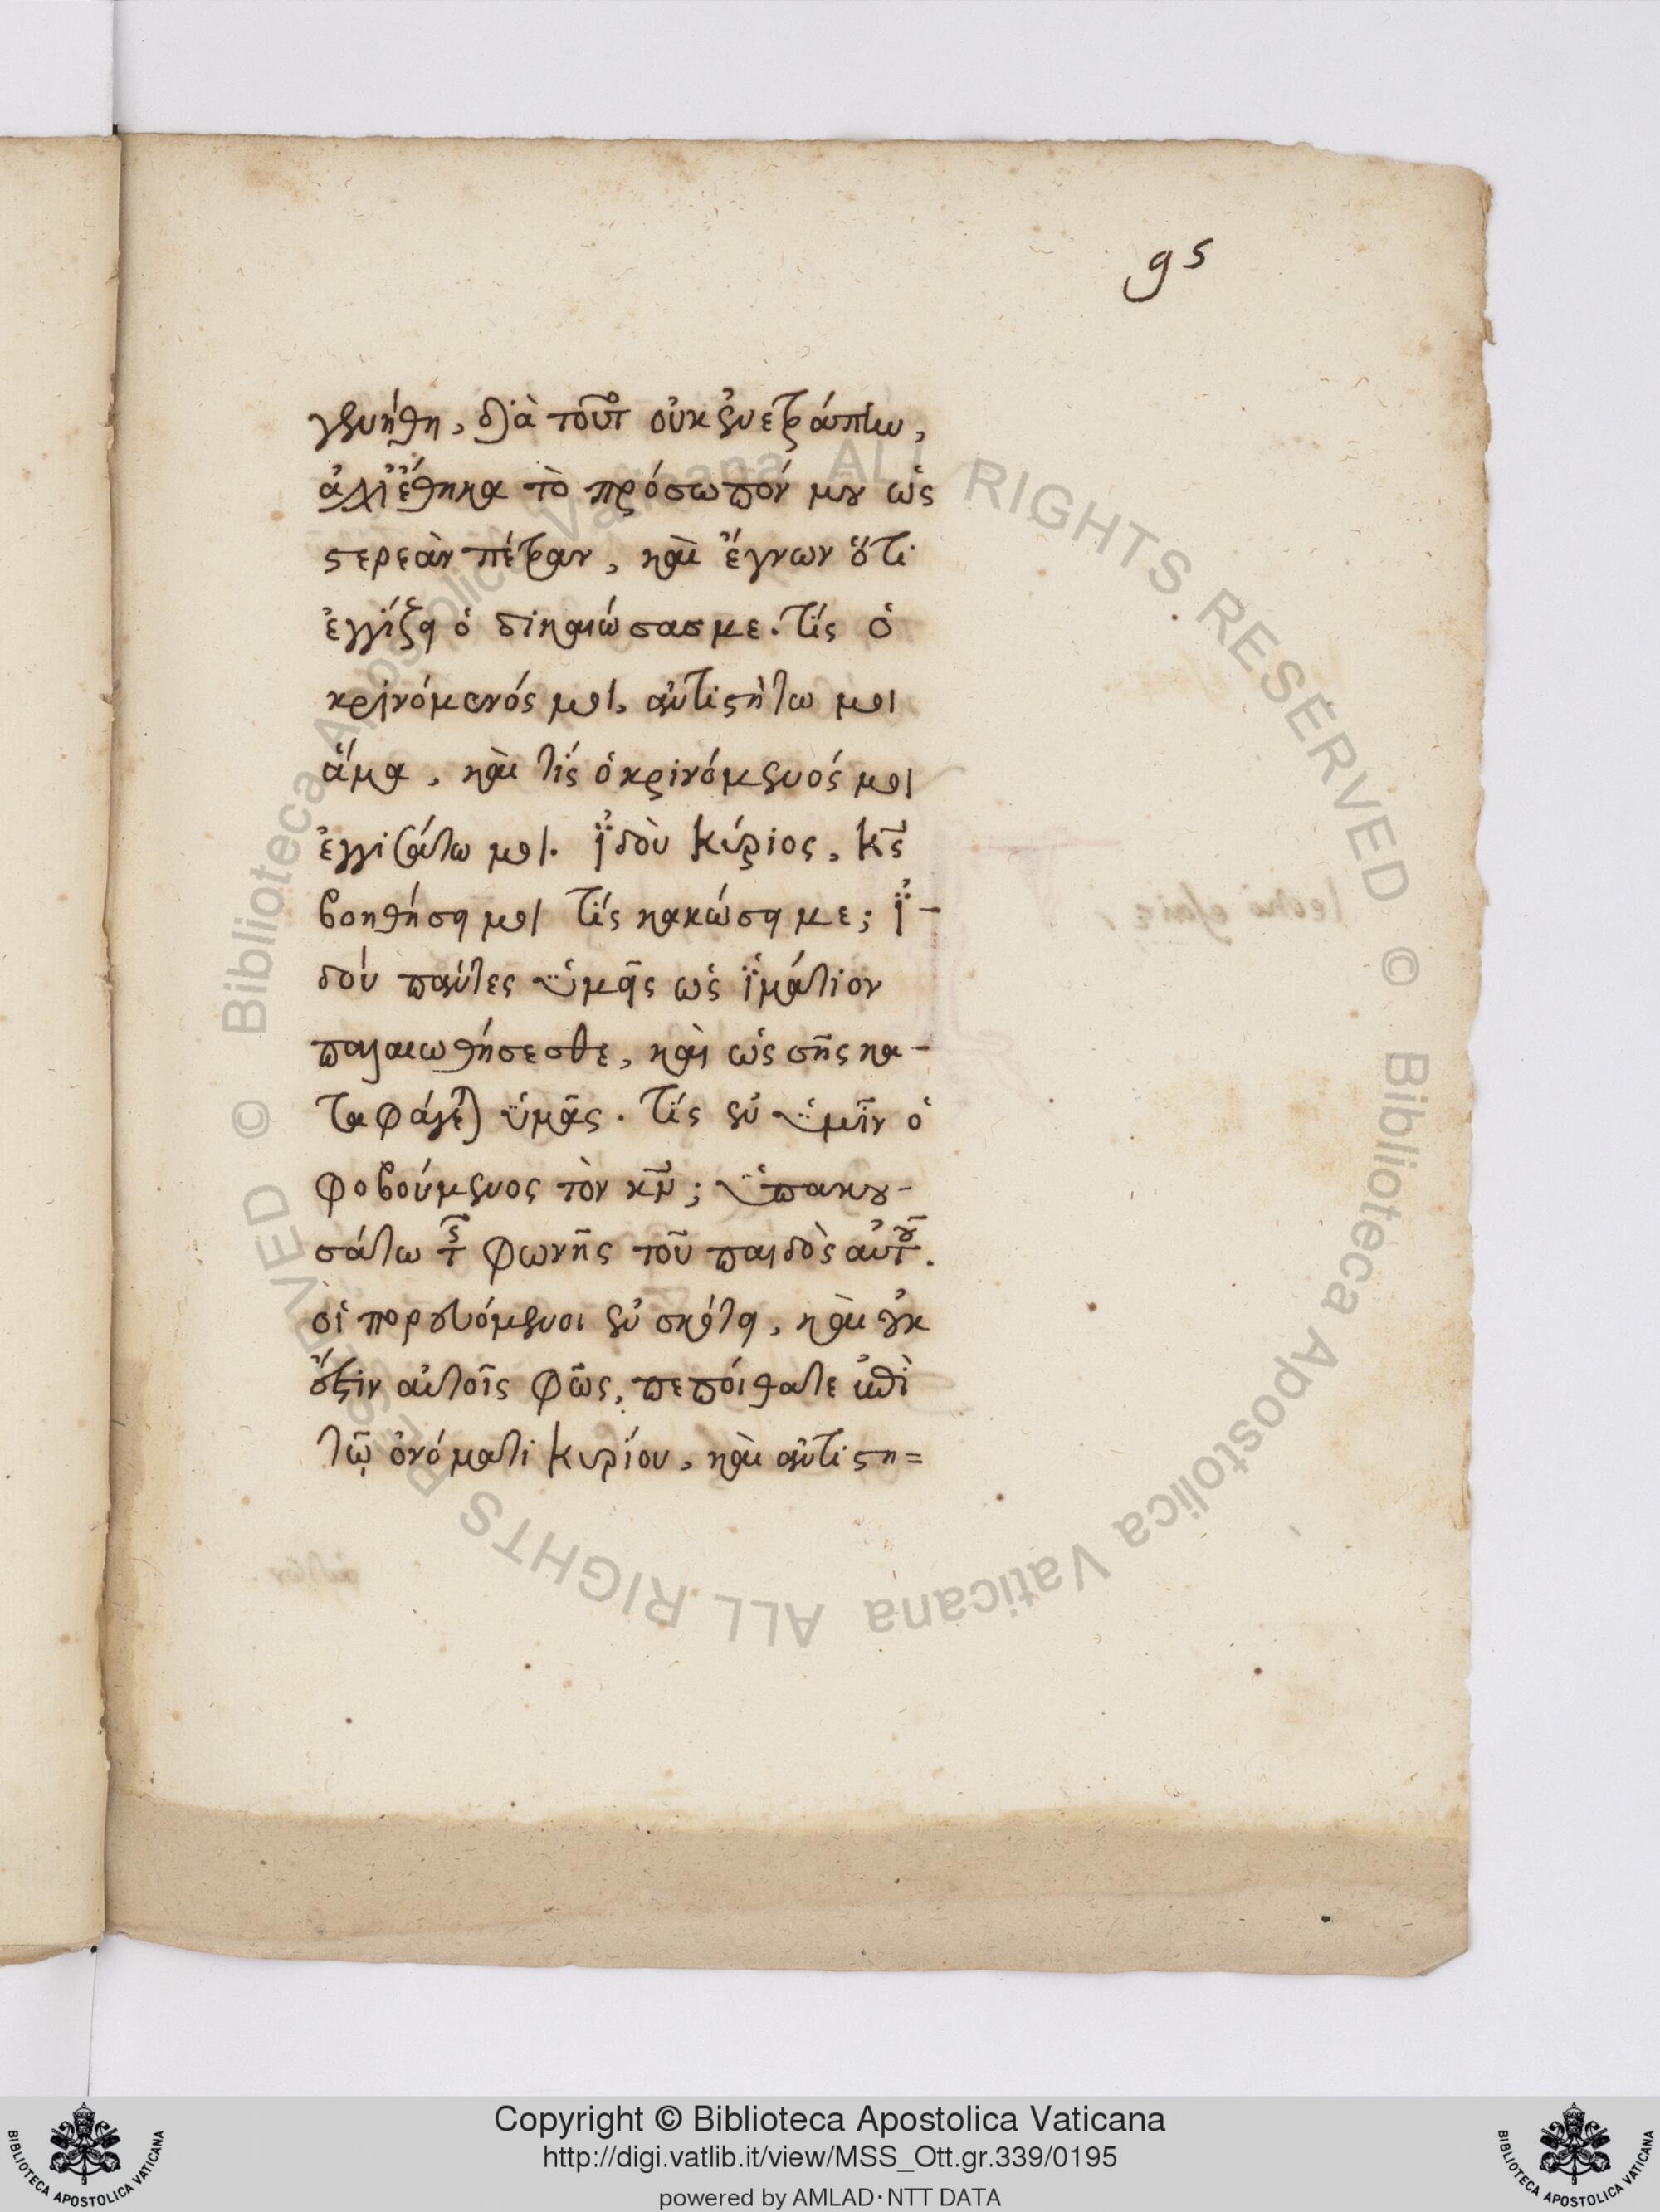 95
γενήθη, διὰ τοῦτο οὐκ ἐνετράπην,
ἀλλ' ἔθηκα τὸ πρόσωπόν μου ὡς
στερεὰν πέτραν, καὶ ἔγνων ὅτι
ἐγγίζει ὁ δικαιώσας με. τίς ὁ
κρϊνόμενός μοι, ἀντιστήτω μοι
ἅμα, καὶ τίς ὁ κρινόμενός μοι
ἐγγισάτω μοι. ϊδοὺ Κύριος, Κς
βοηθήσει μοι τίς κακώσει με; ϊ-
δού πάντες ϋμεῖς ὡς ϊμάτιον
παλαιωθήσεσθε, καὶ ὡς σῆς κα-
ταφάγεται ϋμᾶς. τίς ἐν ϋμῖν ὁ
φοβούμενος τὸν κν; ϋπακου-
σάτω τῆς φωνῆς τοῦ παιδὸς αὐτοῦ.
οἱ πορευόμενοι ἐν σκότει, καὶ οὐκ
ἔστιν αὐτοῖς φῶς, πεποίθατε ἐπὶ
τῷ ὀνόματι Κυρίου, καὶ ἀντιστη=
Biblioteca Apostolica Vaticana ALL RIGHTS RESERVED ©
Biblioteca Apostolica Vaticana ALL RIGHTS RESERVED ©
Copyright © Biblioteca Apostolica Vaticana
http://digi.vatlib.it/view/MSS_Ott.gr.339/0195
powered by AMLAD·NTT DATA
BIBLIOTECA APOSTOLICA VATICANA
BIBLIOTECA APOSTOLICA VATICANA